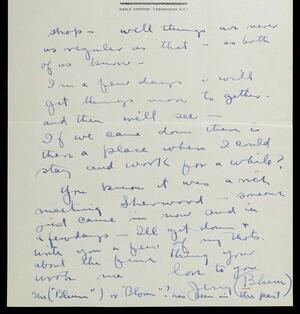 CABLE ADDRESS
shop - well things are never
as regular as that - as both
of us know -
In a few days I will
get things more to gether -
and then we'll see -
If we came down there is
there a place where I could
stay and work for a while?
You know it was a rich
meeting Sherwood - someone
just came in now and in
a few days - I'll get down &
write you a few of my thots.
about the fine thing you
wrote me
love to you
Jerry (Blum)
("Blum") or "Bloom"? has been in the past